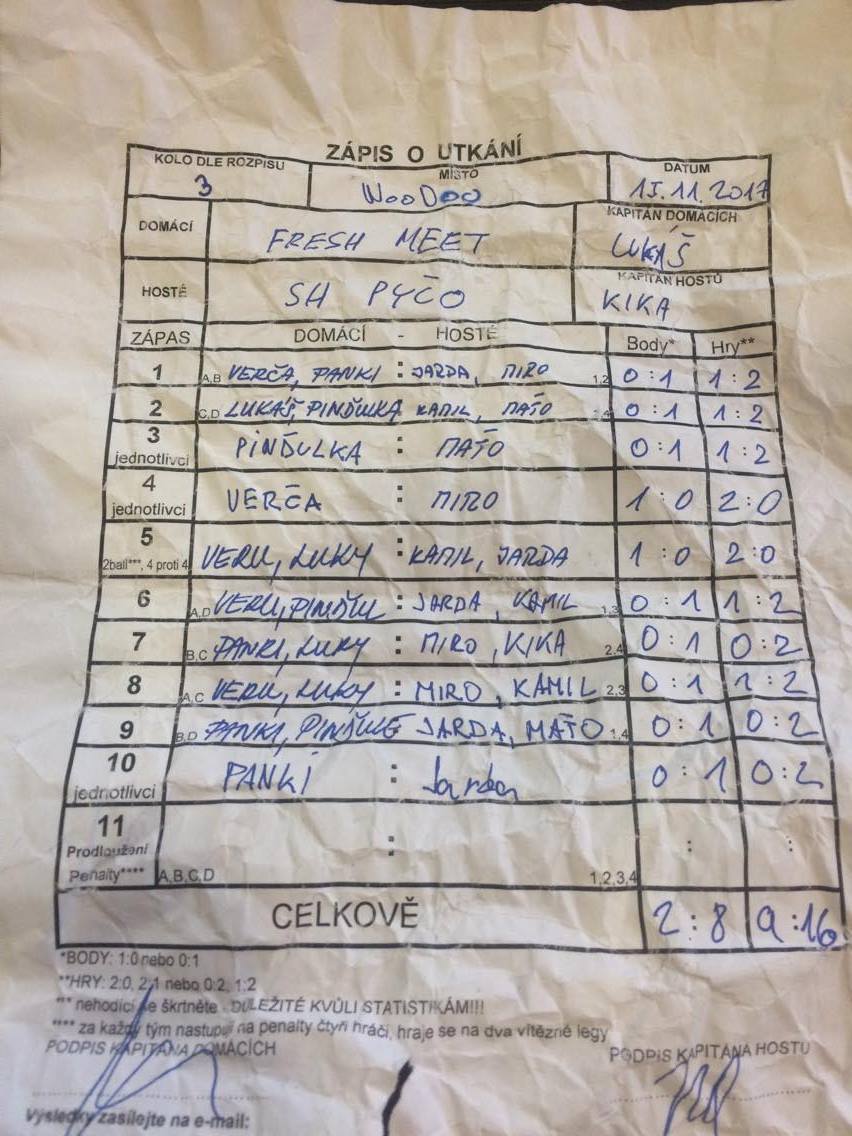 ZÁPIS O UTKÁNÍ
KOLO DLE ROZPISU MÍSTO DATUM
3 WOODOO 15.11.2017
DOMÁCÍ FRESH MEET KAPITÁN DOMÁCÍCH LUKÁŠ
HOSTÉ SH PYČO KAPITÁN HOSTŮ KIKA
ZÁPAS DOMÁCÍ - HOSTÉ Body* Hry**
1 A,B VERČA, PANKI : JARDA, MIRO 1,2 0:1 1:2
2 C,D LUKÁŠ, PINĎULKA KAMIL, MAŤO 3,4 0:1 1:2
3 jednotlivci PINĎULKA : MAŤO 0:1 1:2
4 jednotlivci VERČA : MIRO 1:0 2:0
5 2ball***, 4 proti 4 VERU, LUKY : KAMIL, JARDA 1:0 2:0
6 A,D VERU, PINĎUL : JARDA, KAMIL 1,3 0:1 1:2
7 B,C PANKI, LUKY : MIRO, KIKA 2,4 0:1 0:2
8 A,C VERU, LUKY : MIRO, KAMIL 2,3 0:1 1:2
9 B,D PANKI, JARDA, MAŤO 1,4 0:1 0:2
10 jednotlivci PANKI : Jarda 0:1 0:2
11 Prodloužení : : :
Penalty**** A,B,C,D 1,2,3,4
CELKOVĚ 2:8 9:16
*BODY: 1:0 nebo 0:1
**HRY: 2:0, 2:1 nebo 0:2, 1:2
*** nehodící se škrtněte - DŮLEŽITÉ KVŮLI STATISTIKÁM!!!
**** za každý tým nastupují na penalty čtyři hráči, hraje se na dva vítězné legy
PODPIS KAPITÁNA DOMÁCÍCH PODPIS KAPITÁNA HOSTŮ
Výsledky zasílejte na e-mail: